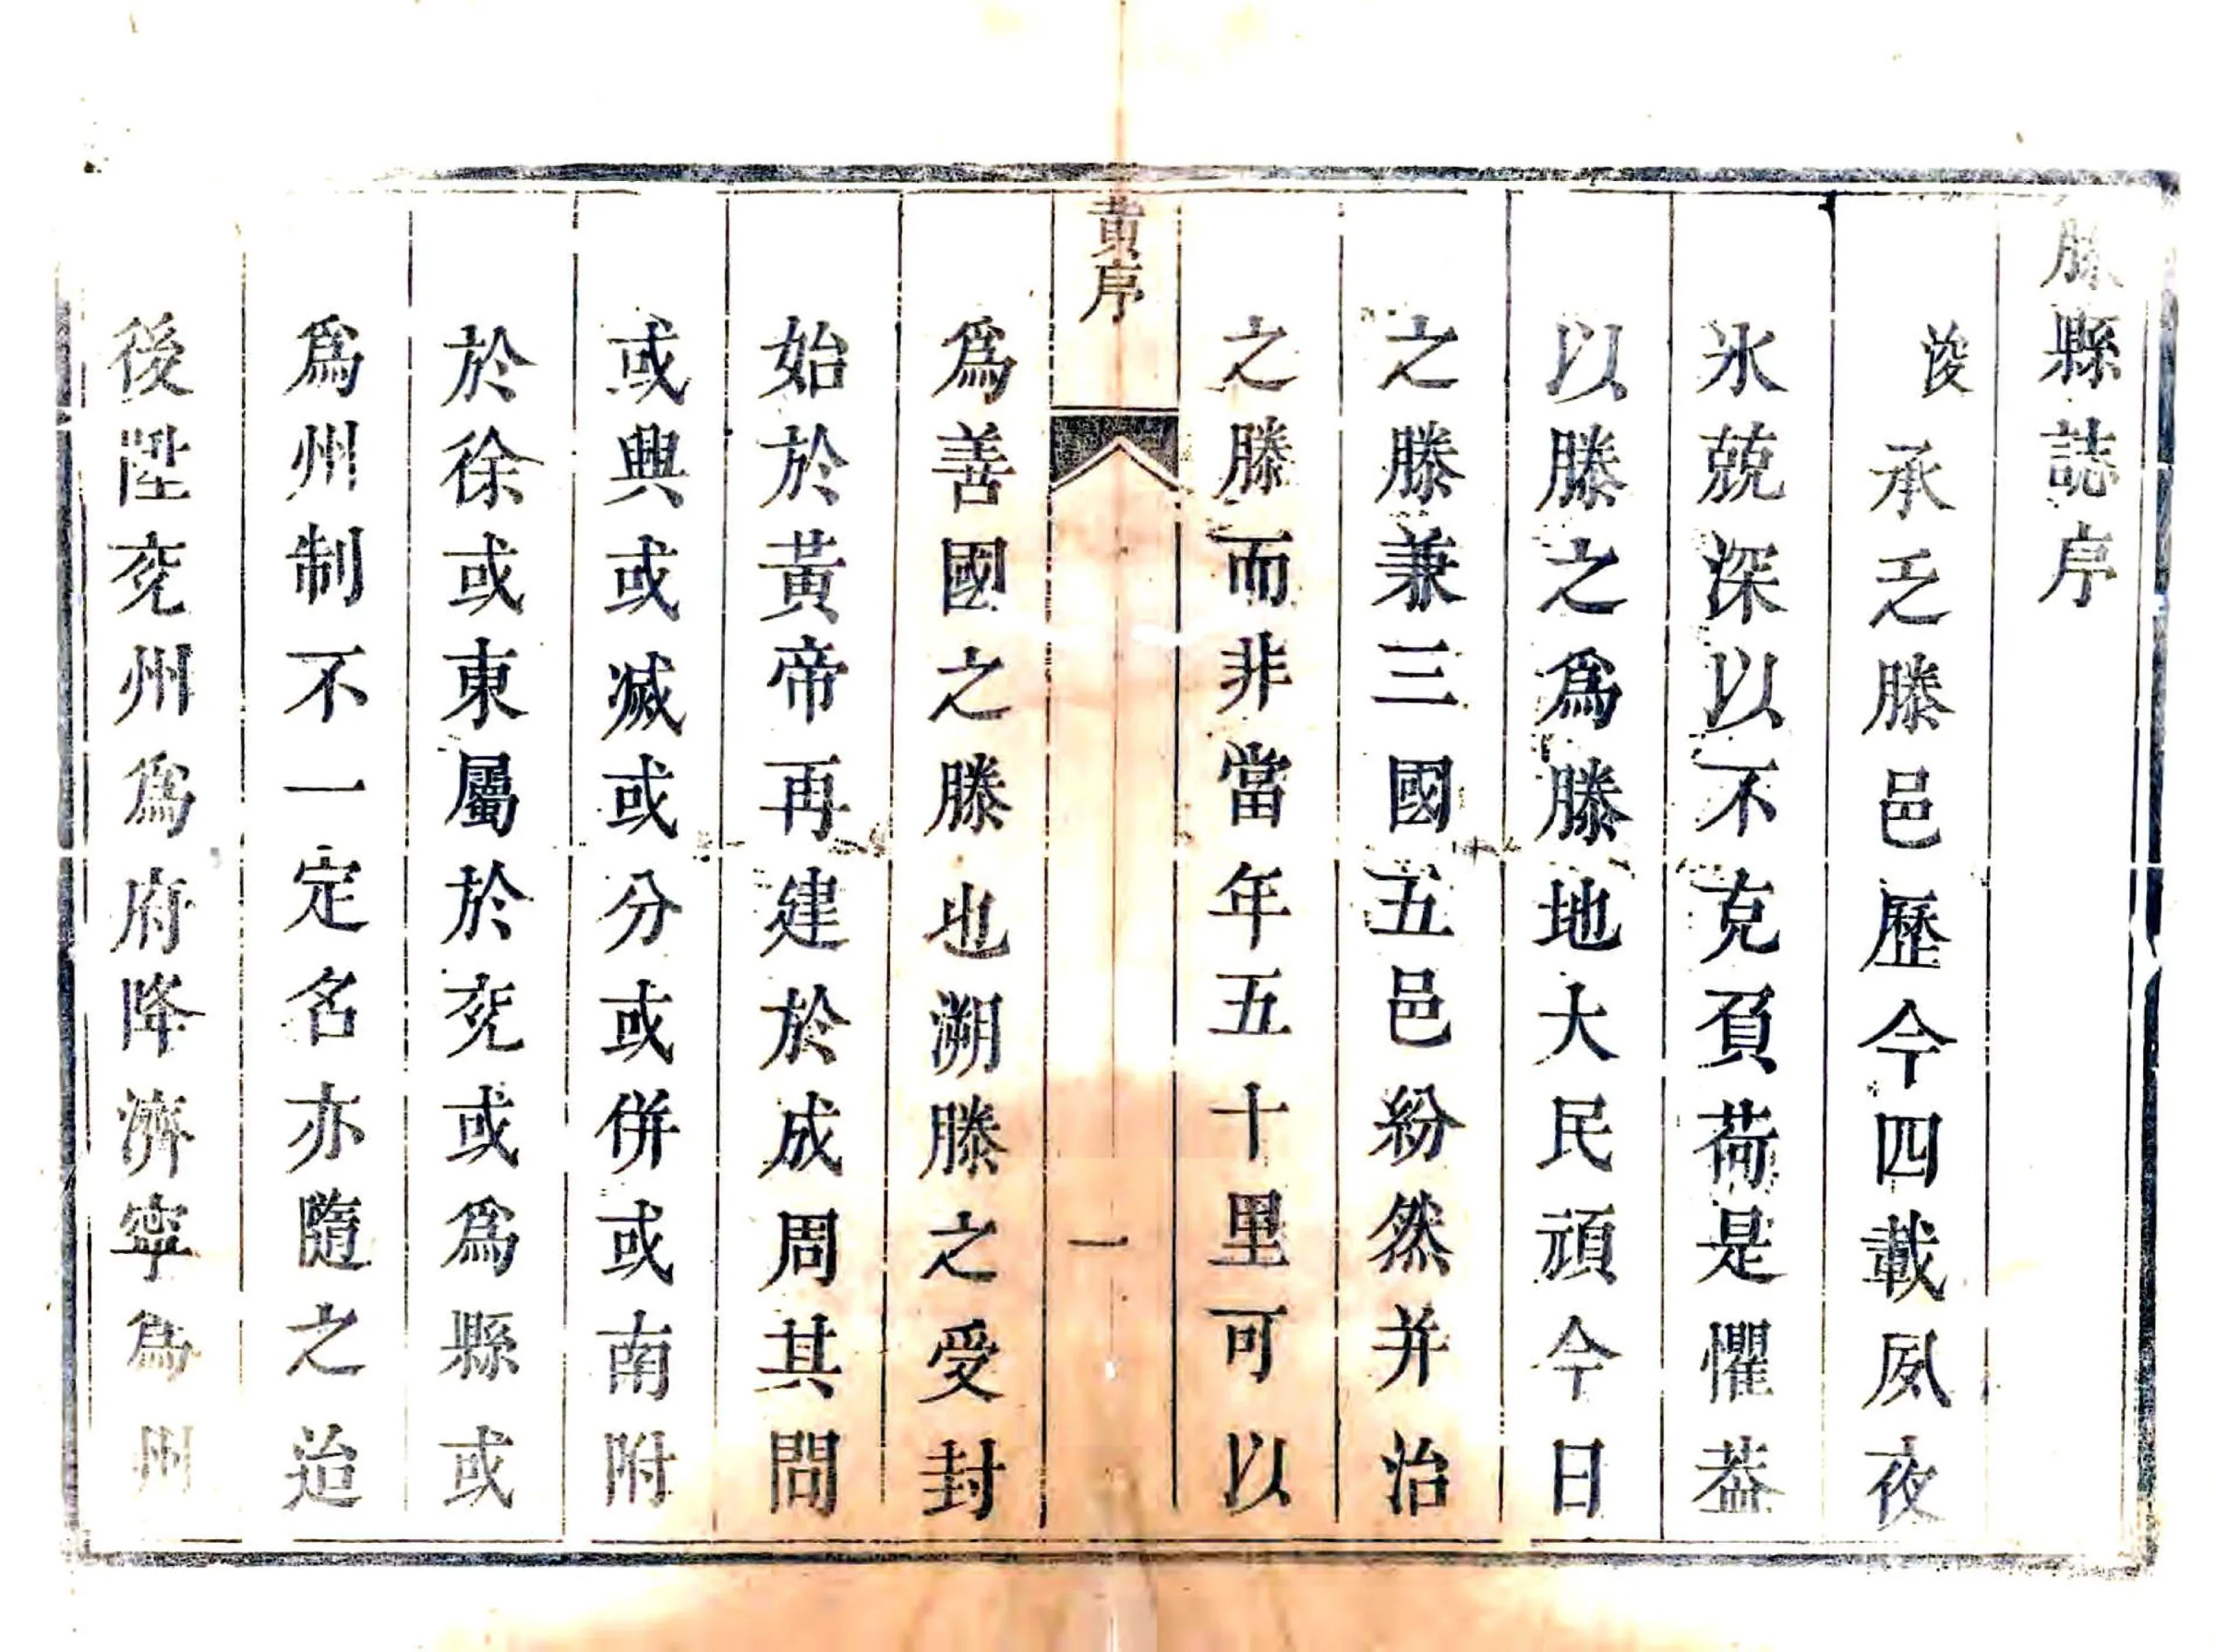 滕縣誌序
浚承乏滕邑歷今四載夙夜
氷兢深以不克負荷是懼葢
以滕之爲滕地大民頑今日
之滕兼三國五邑紛然并治
之滕而非當年五十里可以
黃序
一
爲善國之滕也溯滕之受封
始於黃帝再建於成周其間
或興或滅或分或併或南附
於徐或東屬於兖或爲縣或
爲州制不一定名亦隨之迨
後陞兖州爲府降濟寧爲州